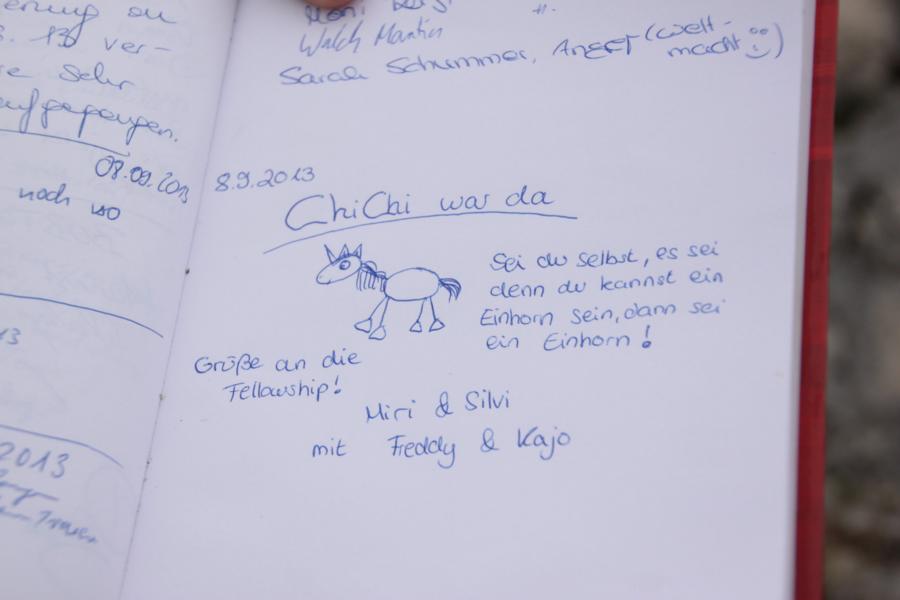 erung au
S. 13 ver-
sehr
aufgegangen.
08.09.2013
noch so
13
2013
Walch Martin
Sarah Schummer, Anger (Welt-
macht)
8.9.2013
ChiChi war da
Sei du selbst, es sei
denn du kannst ein
Einhorn sein, dann sei
ein Einhorn!
Grüße an die
Fellowship!
Miri & Silvi
mit Freddy & Kajo